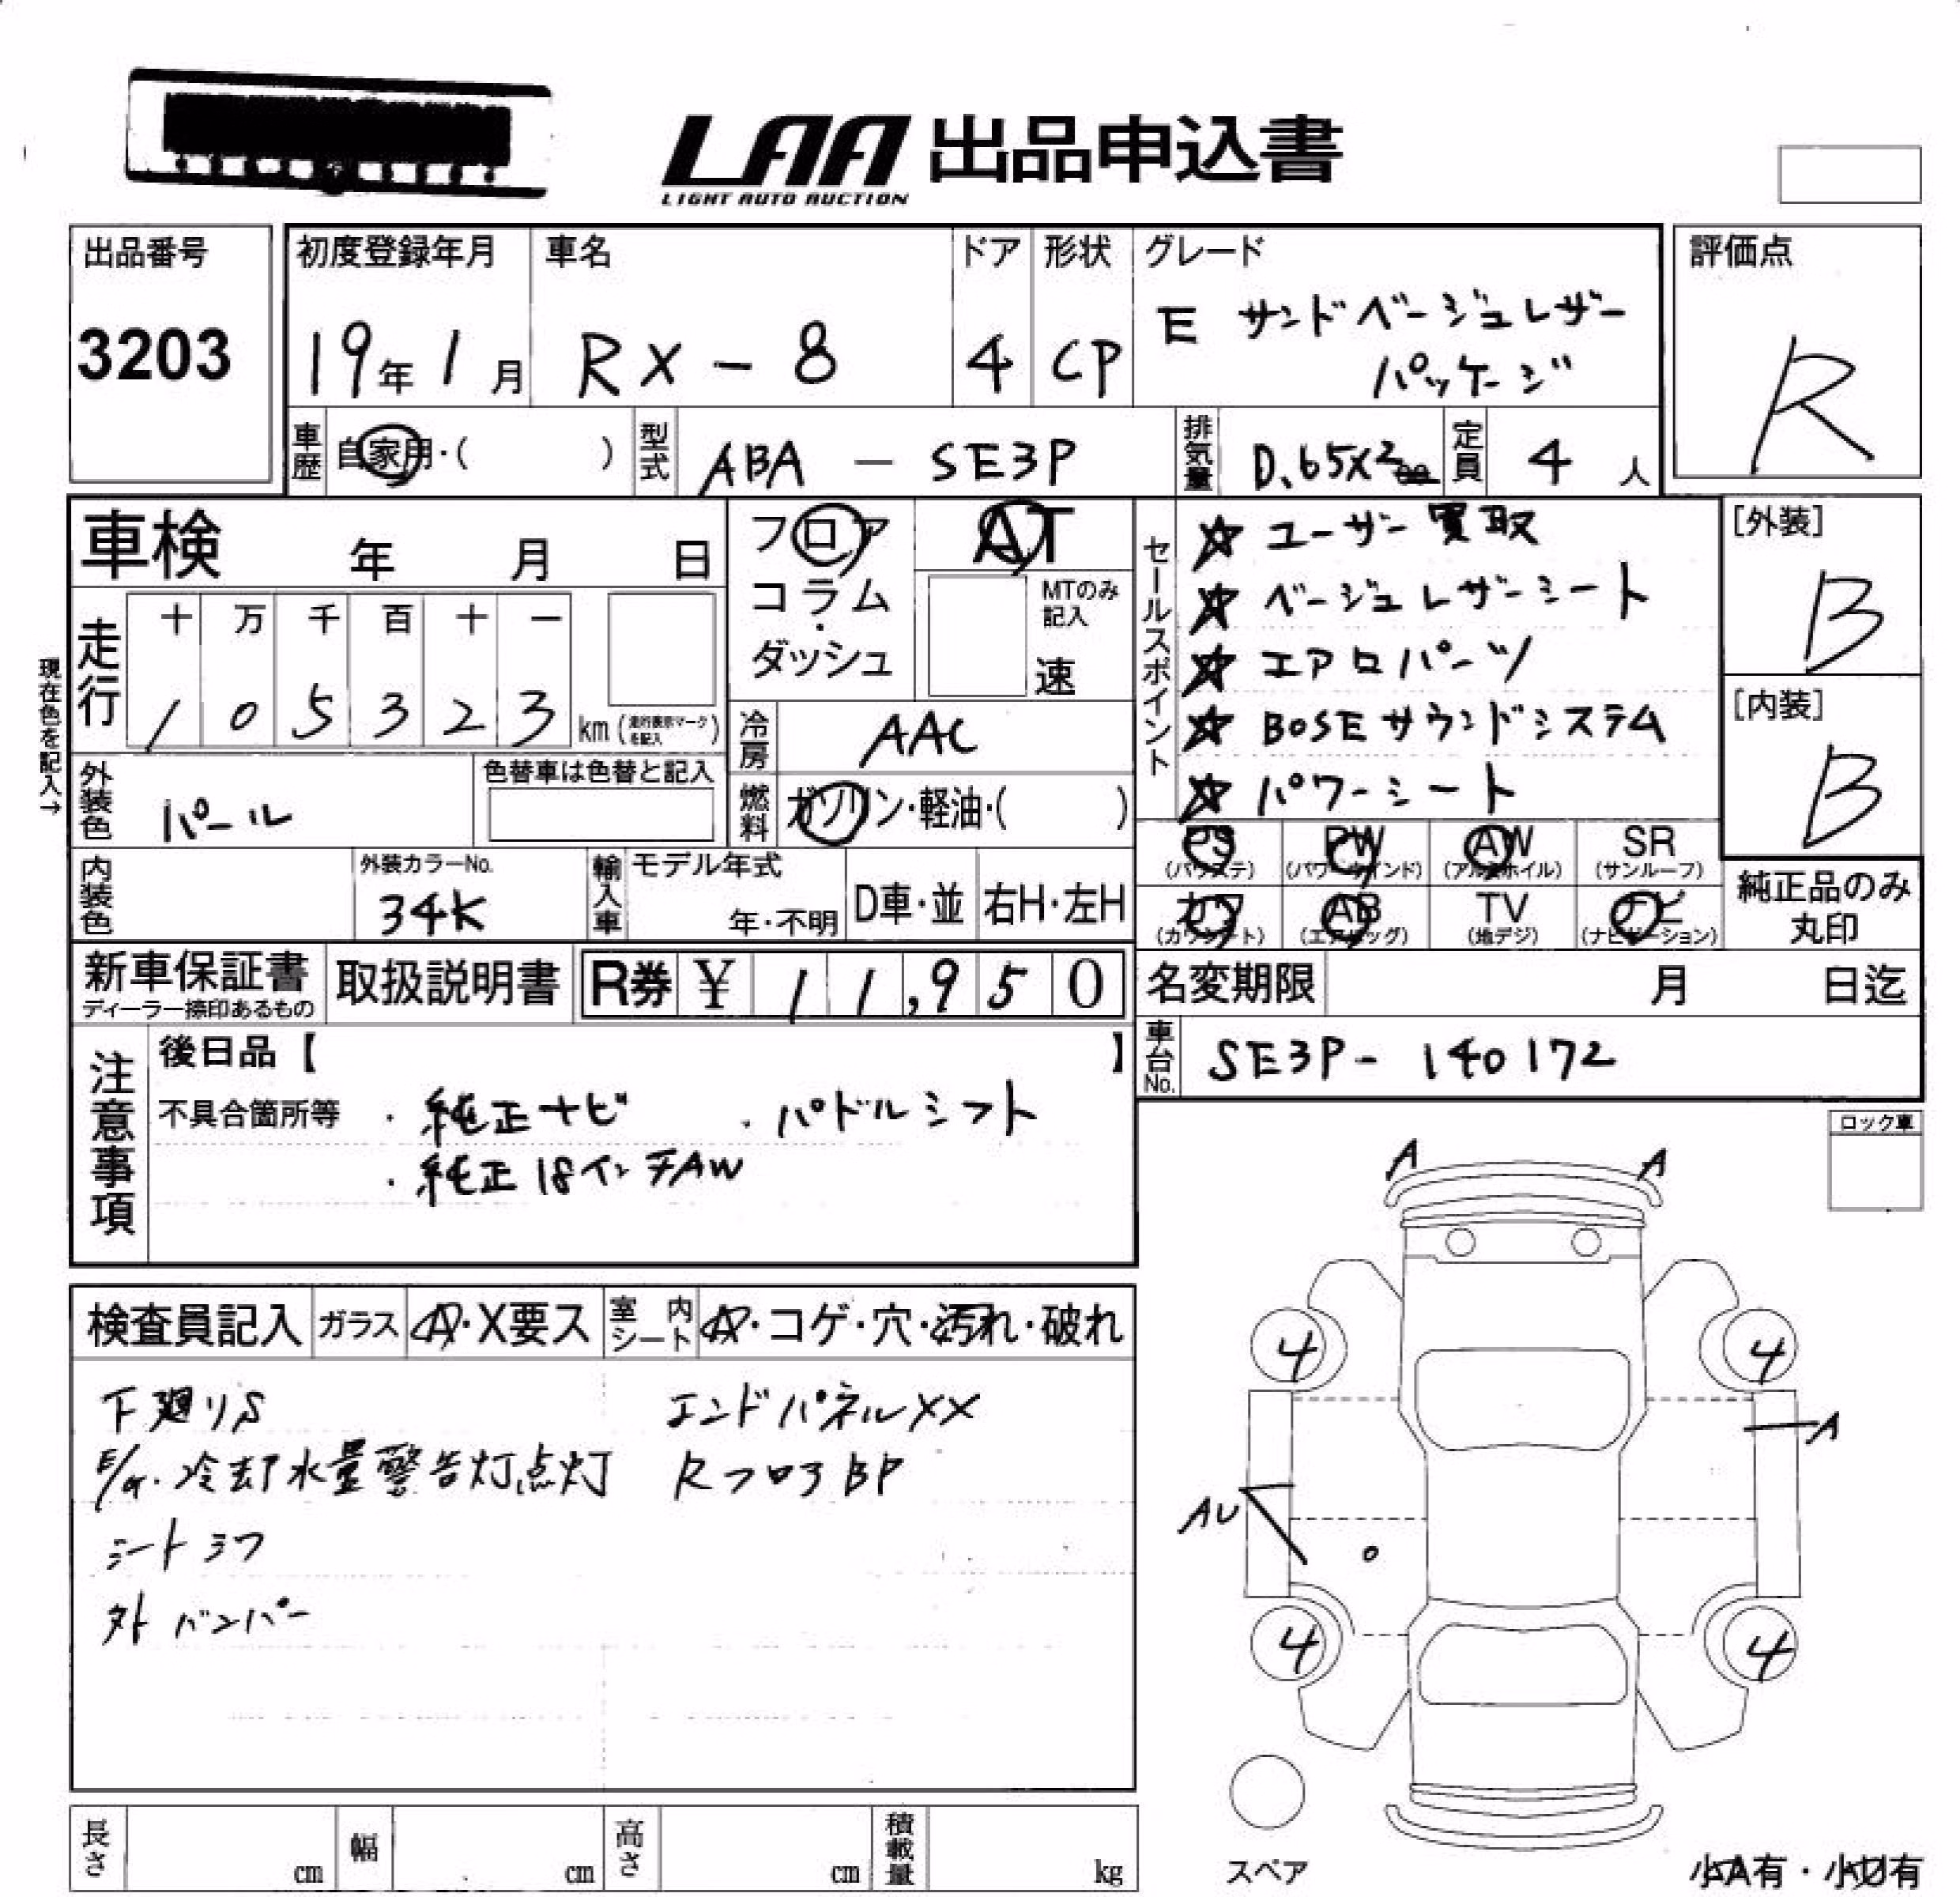 LAA 出品申込書
LIGHT AUTO AUCTION
出品番号
3203
初度登録年月
19年 1月
車名
RX-8
ドア
4
形状
CP
グレード
E サンドベージュレザー
パッケージ
評価点
R
車歴
自家用・( )
型式
ABA - SE3P
排気量
0.65X2
定員
4人
車検 年 月 日
フロア
コラム・
ダッシュ
AT
MTのみ
記入
速
現在色を記入→
走行
十 万 千 百 十 一
1 0 5 3 2 3 km (走行表示マークを記入)
冷房
AAC
外装色
パール
色替車は色替と記入
燃料
ガソリン・軽油・( )
内装色
外装カラーNo.
34K
輸入車
モデル年式
年・不明
D車・並
右H・左H
セールスポイント
☆ ユーザー買取
☆ ベージュレザーシート
☆ エアロパーツ
☆ BOSEサウンドシステム
☆ パワーシート
[外装]
B
[内装]
B
PS (パワステ)
PW (パワーウインド)
AW (アルミホイル)
SR (サンルーフ)
カワ (カワシート)
AB (エアバッグ)
TV (地デジ)
ナビ (ナビゲーション)
純正品のみ
丸印
新車保証書
ディーラー捺印あるもの
取扱説明書
R券 ¥ 11,950
名変期限 月 日迄
車台No.
SE3P- 140172
注意事項
後日品【 】
不具合箇所等
・純正ナビ ・パドルシフト
・純正18インチAW
ロック車
検査員記入
ガラス
A・X要ス
室内シート
A・コゲ・穴・汚れ・破れ
下廻りS
E/G.冷却水量警告灯点灯
シートシワ
外バンパー
エンドパネルXX
RフロアBP
A
A
4
4
A
AU
4
4
スペア
小A有・小U有
長さ cm
幅 cm
高さ cm
積載量 kg